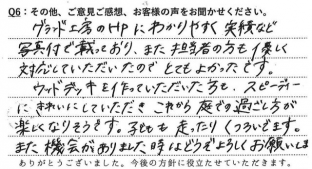 Q6：その他、ご意見ご感想、お客様の声をお聞かせください。
グランド工房のHPにわかりやすく実績など
写真付で載っており、また担当者の方も優しく
対応していただいたのでとてもよかったです。
ウッドデッキを作っていただいた方も、スピーディー
にきれいにしていただき これから庭での過ごし方が
楽しくなりそうです。子どもも走ったりくつろいでます。
また機会がありました時はどうぞよろしくお願いしま
ありがとうございました。今後の方針に役立たせていただきます。